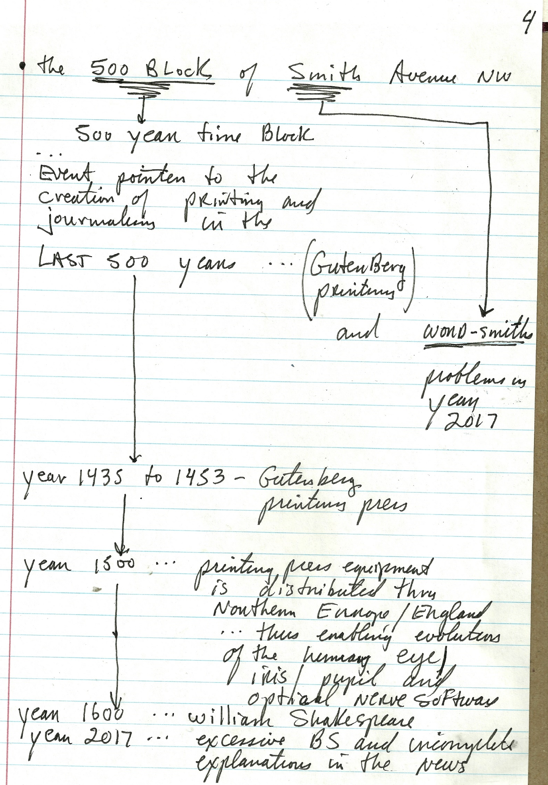 4
• the 500 BLock of Smith Avenue NW
500 year time BLock
...
Event pointer to the
creation of printing and
journalism in the
LAST 500 years ... (GutenBerg
printing)
and word-smith
problems in
year
2017
year 1435 to 1453 - Gutenberg
printing press
year 1500 ... printing press equipment
is distributed thru
Northern Europe/England
... thus enabling evolution
of the human eye/
iris/pupil and
optical nerve software
year 1600 ... william Shakespeare
year 2017 ... excessive BS and incomplete
explanations in the news